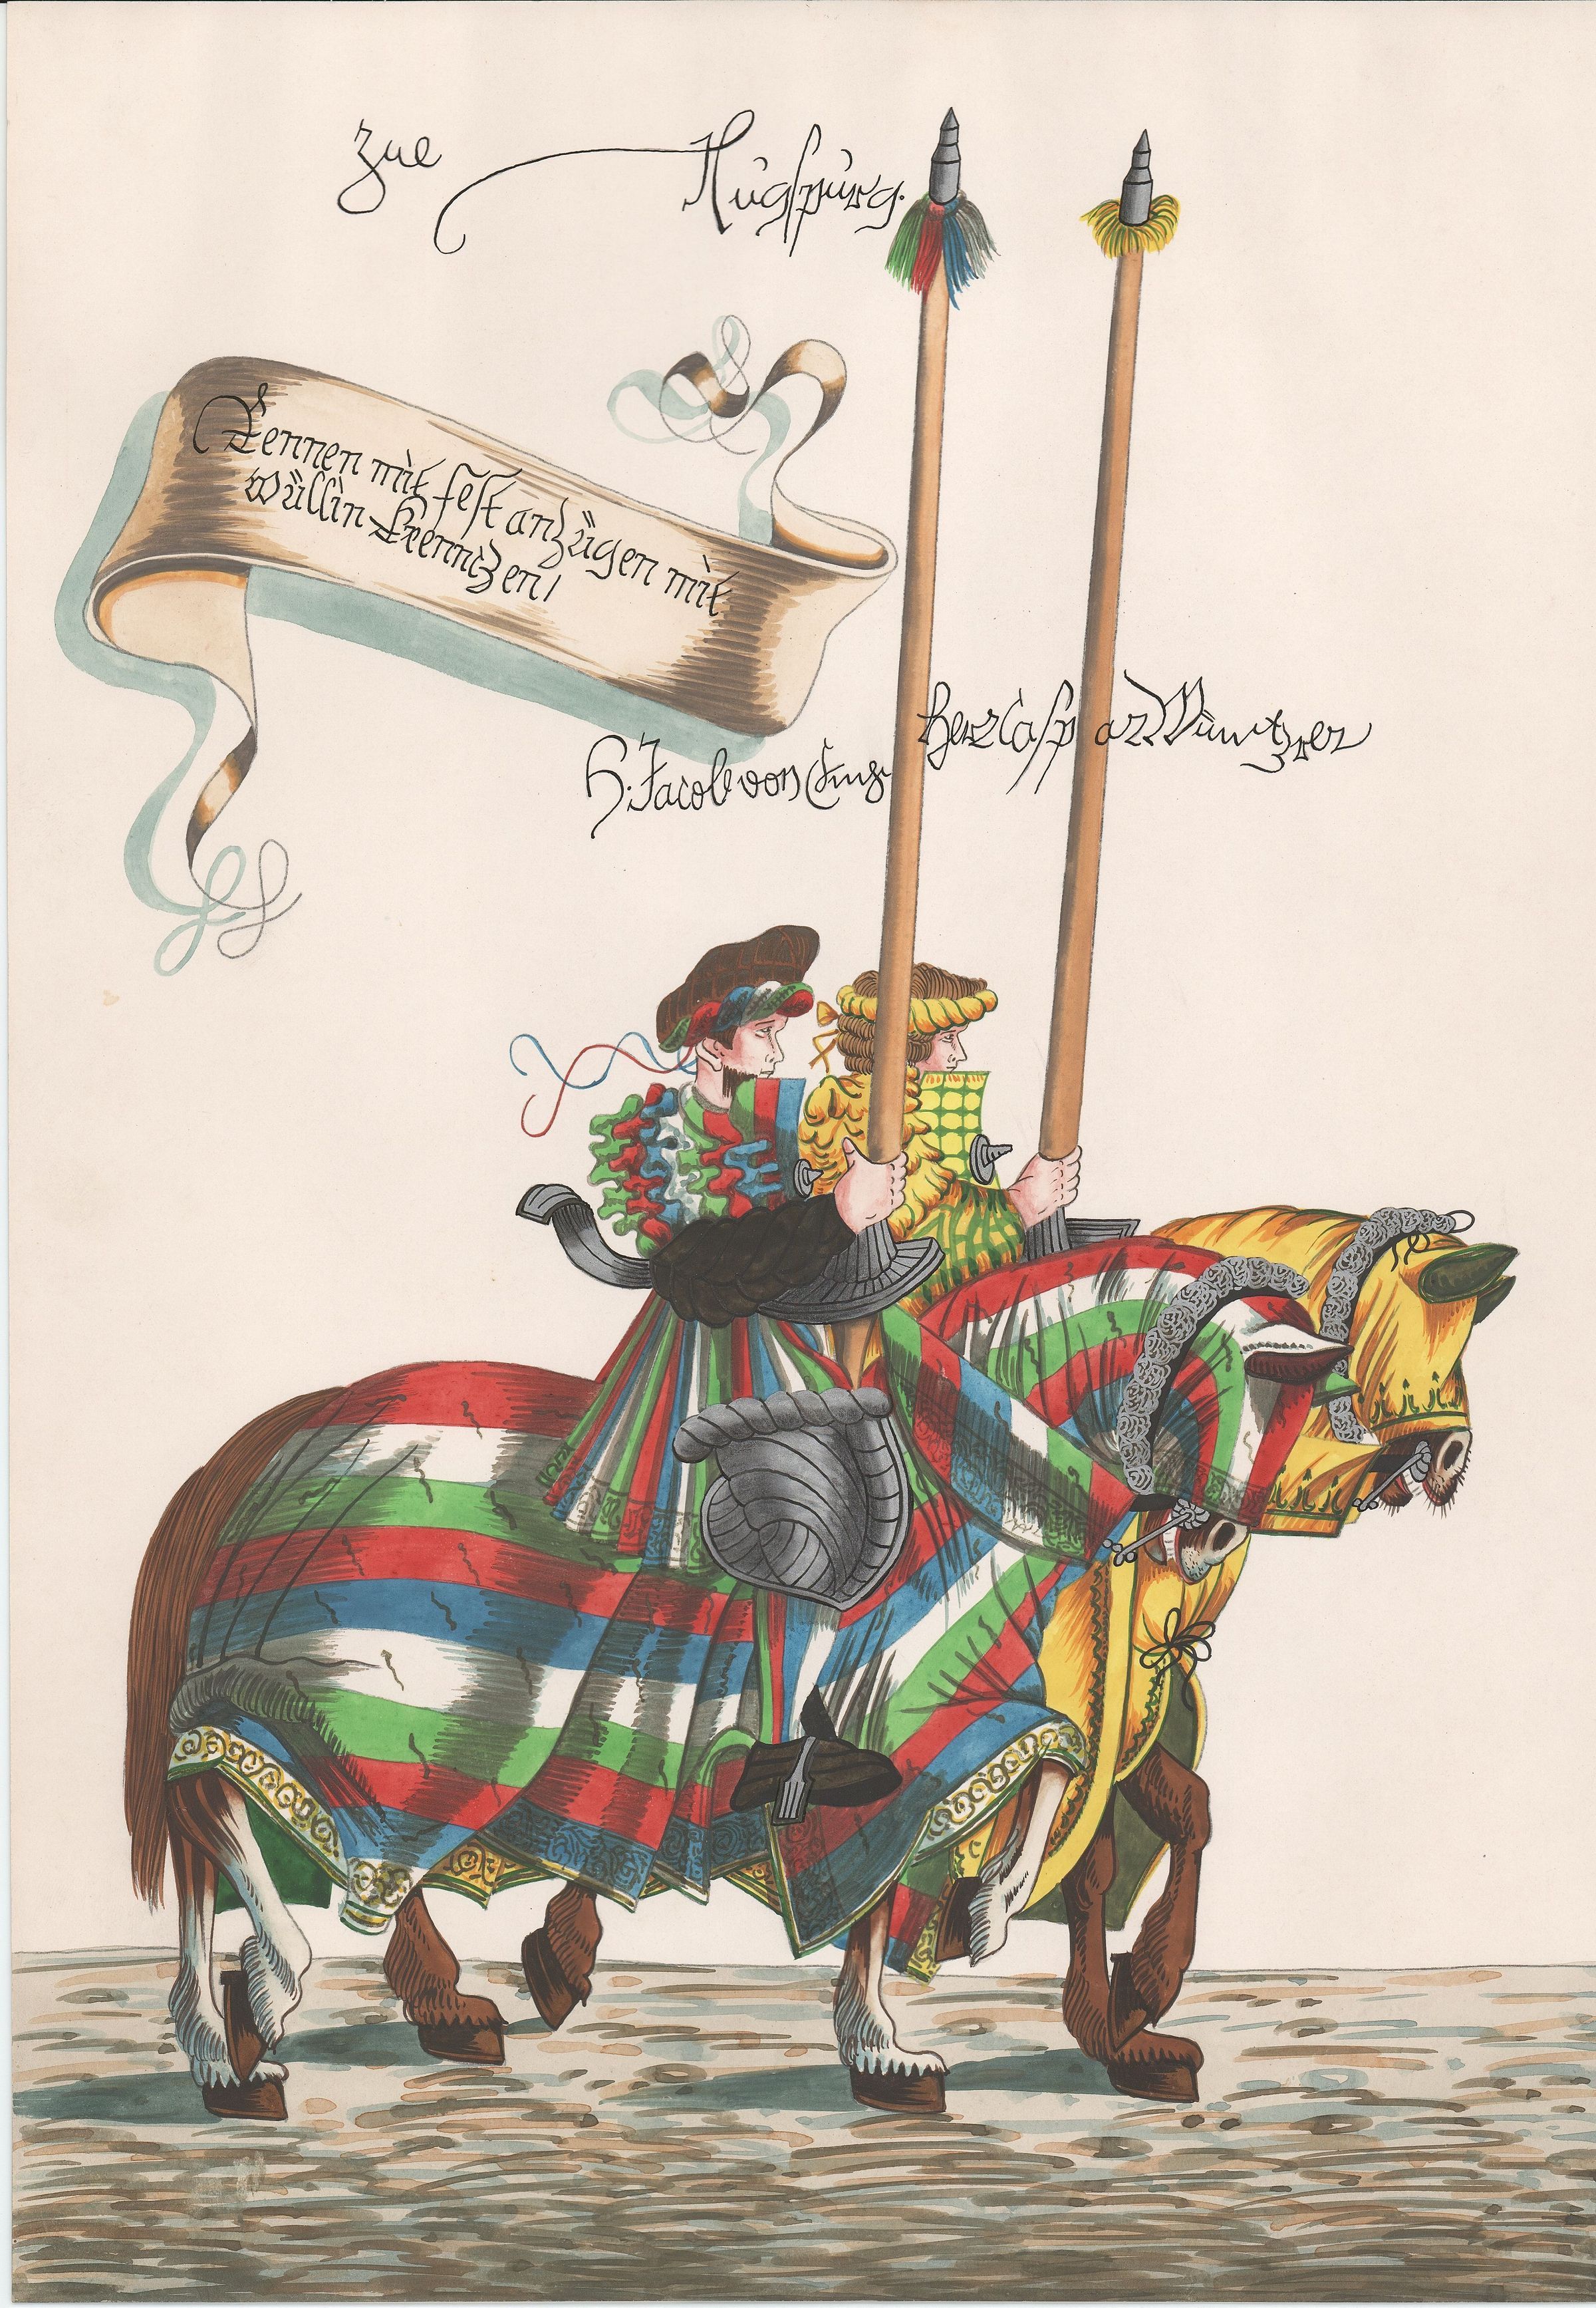 zue Augspurg.
Rennen mit fest anzügen mit
wüllin Krentzen /
H. Jacob von Emps
Herr Caspar Wintzrer